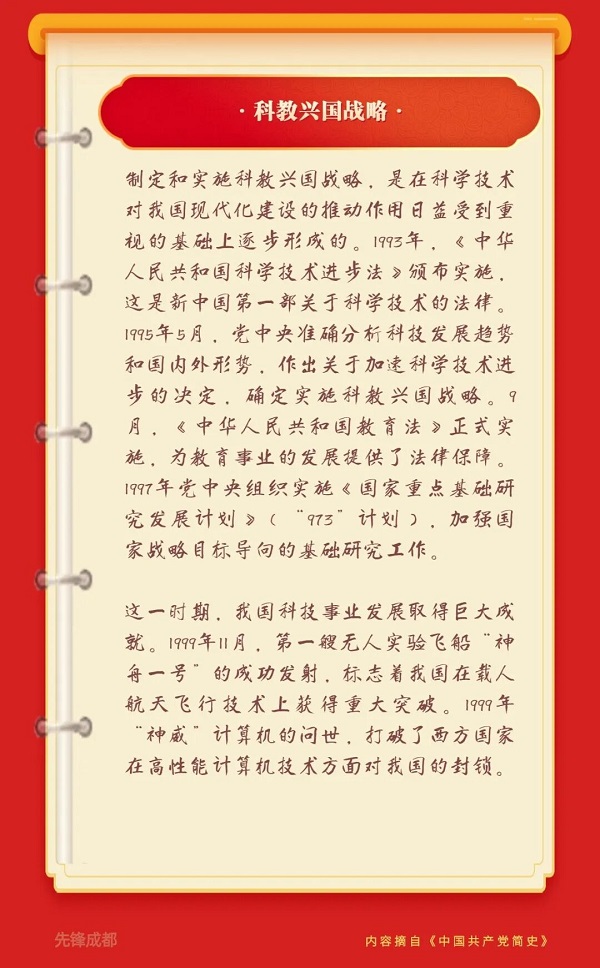 · 科教兴国战略 ·
制定和实施科教兴国战略，是在科学技术
对我国现代化建设的推动作用日益受到重
视的基础上逐步形成的。1993年，《中华
人民共和国科学技术进步法》颁布实施，
这是新中国第一部关于科学技术的法律。
1995年5月，党中央准确分析科技发展趋势
和国内外形势，作出关于加速科学技术进
步的决定，确定实施科教兴国战略。9
月，《中华人民共和国教育法》正式实
施，为教育事业的发展提供了法律保障。
1997年党中央组织实施《国家重点基础研
究发展计划》（“973”计划），加强国
家战略目标导向的基础研究工作。
这一时期，我国科技事业发展取得巨大成
就。1999年11月，第一艘无人实验飞船“神
舟一号”的成功发射，标志着我国在载人
航天飞行技术上获得重大突破。1999年
“神威”计算机的问世，打破了西方国家
在高性能计算机技术方面对我国的封锁。
先锋成都
内容摘自《中国共产党简史》